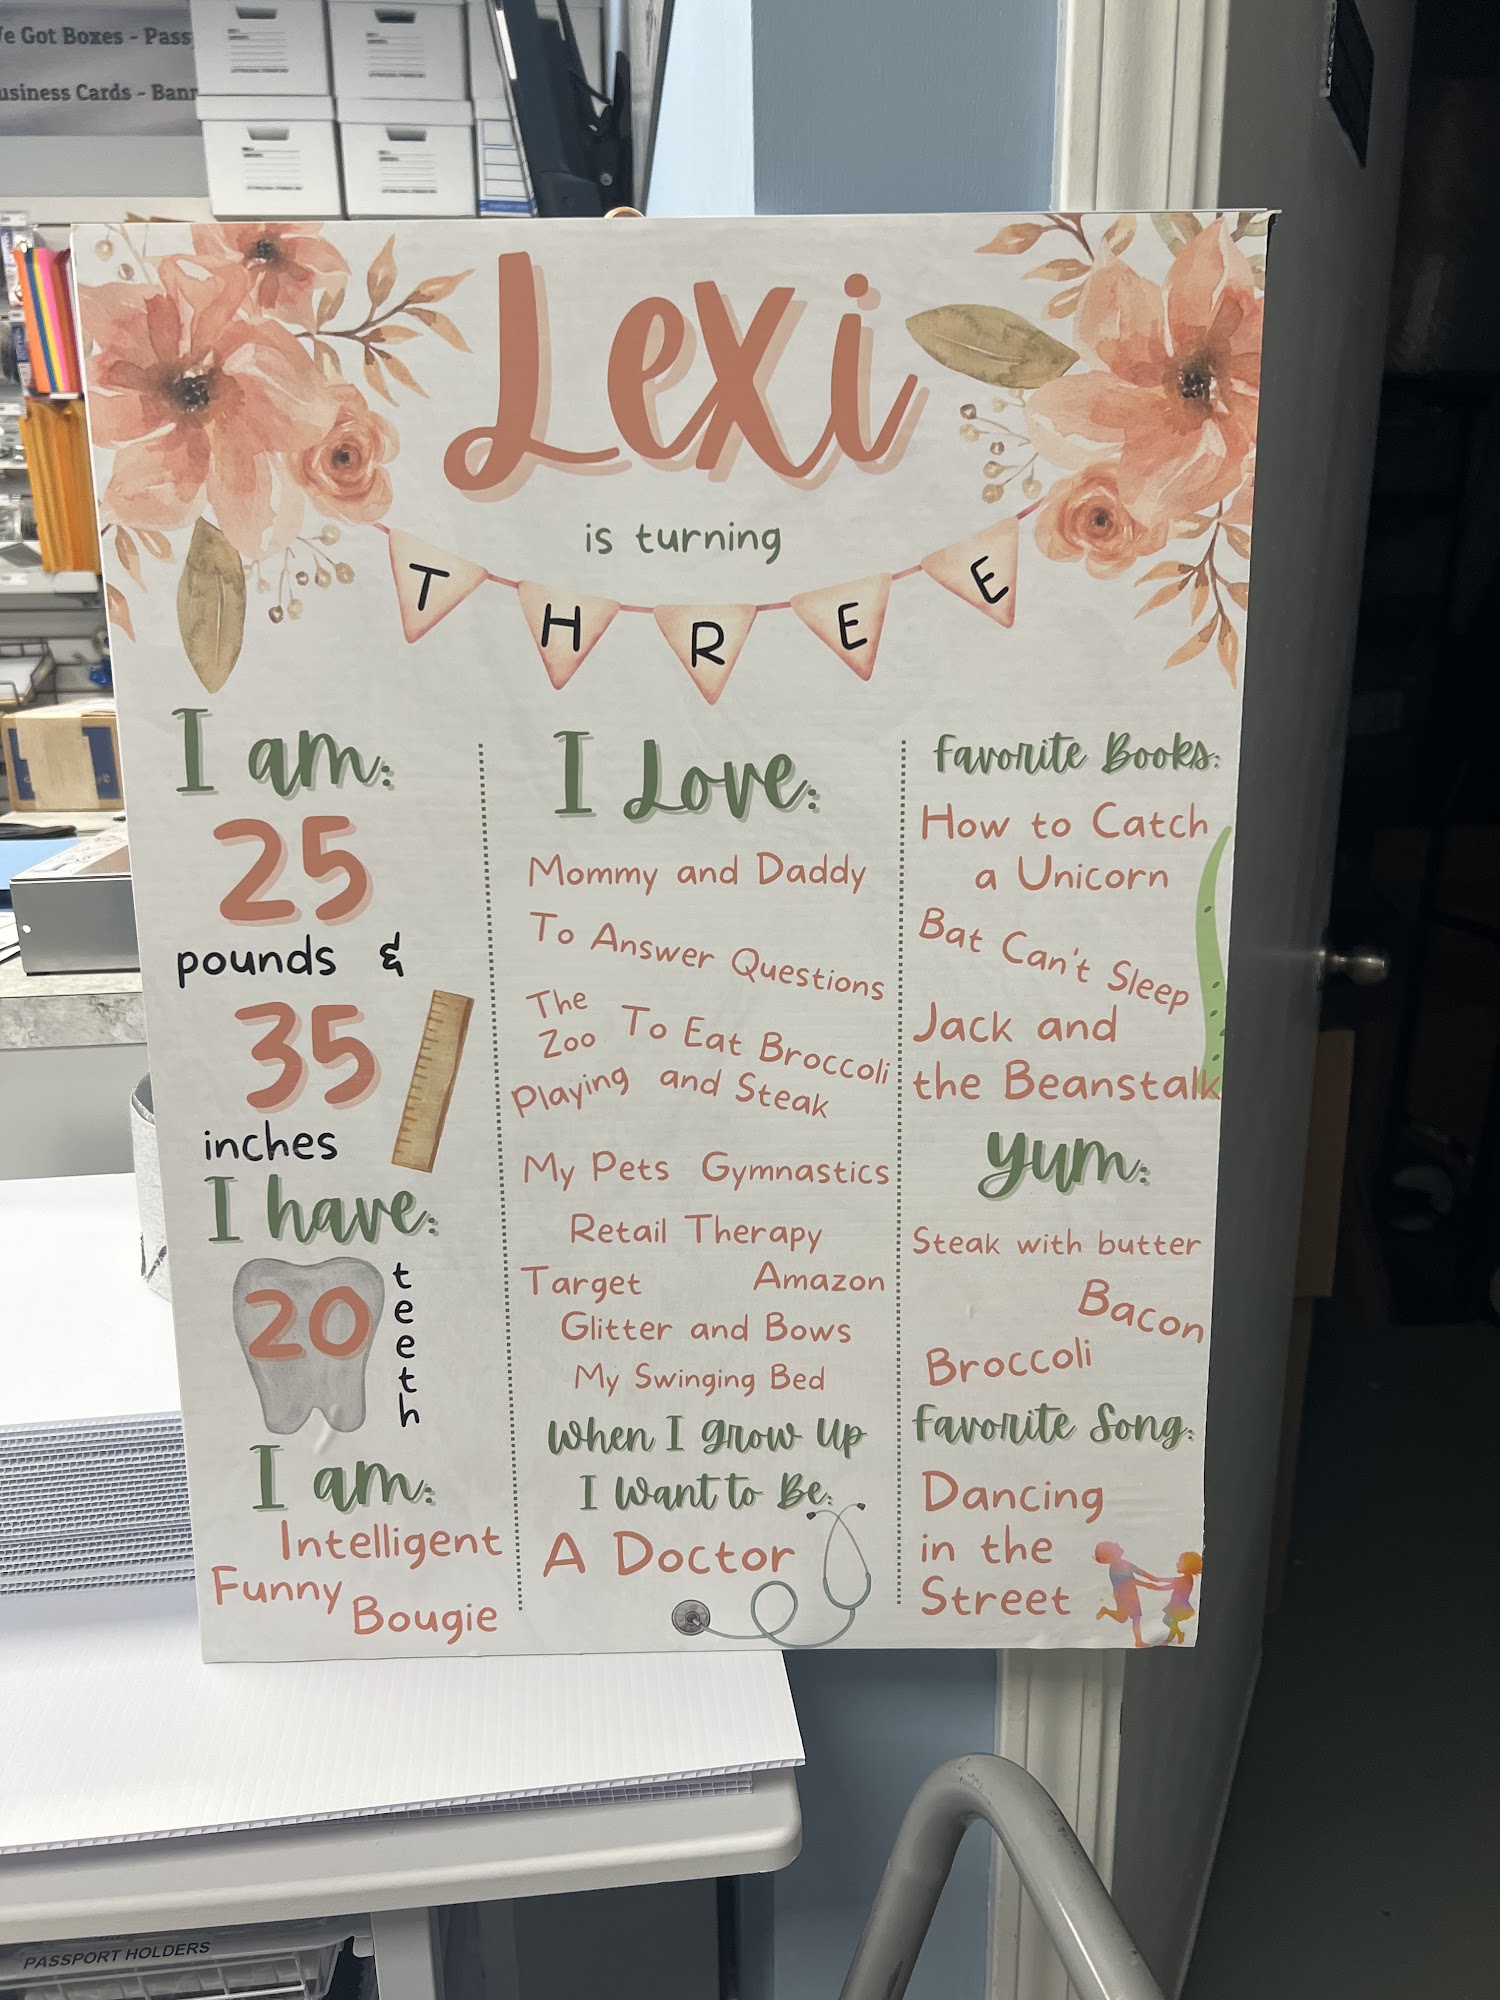 e Got Boxes - Pass
usiness Cards - Bann
Lexi
is turning
THREE
I am:
25
pounds &
35
inches
I have:
20
teeth
I am:
Intelligent
Funny
Bougie
I Love:
Mommy and Daddy
To Answer Questions
The
Zoo
To Eat Broccoli
and Steak
Playing
My Pets
Gymnastics
Retail Therapy
Target
Amazon
Glitter and Bows
My Swinging Bed
When I Grow Up
I Want to Be:
A Doctor
Favorite Books:
How to Catch
a Unicorn
Bat Can't Sleep
Jack and
the Beanstalk
Yum:
Steak with butter
Bacon
Broccoli
Favorite Song:
Dancing
in the
Street
PASSPORT HOLDERS